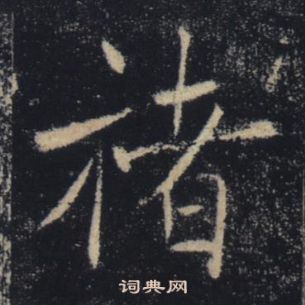 褚
词典网